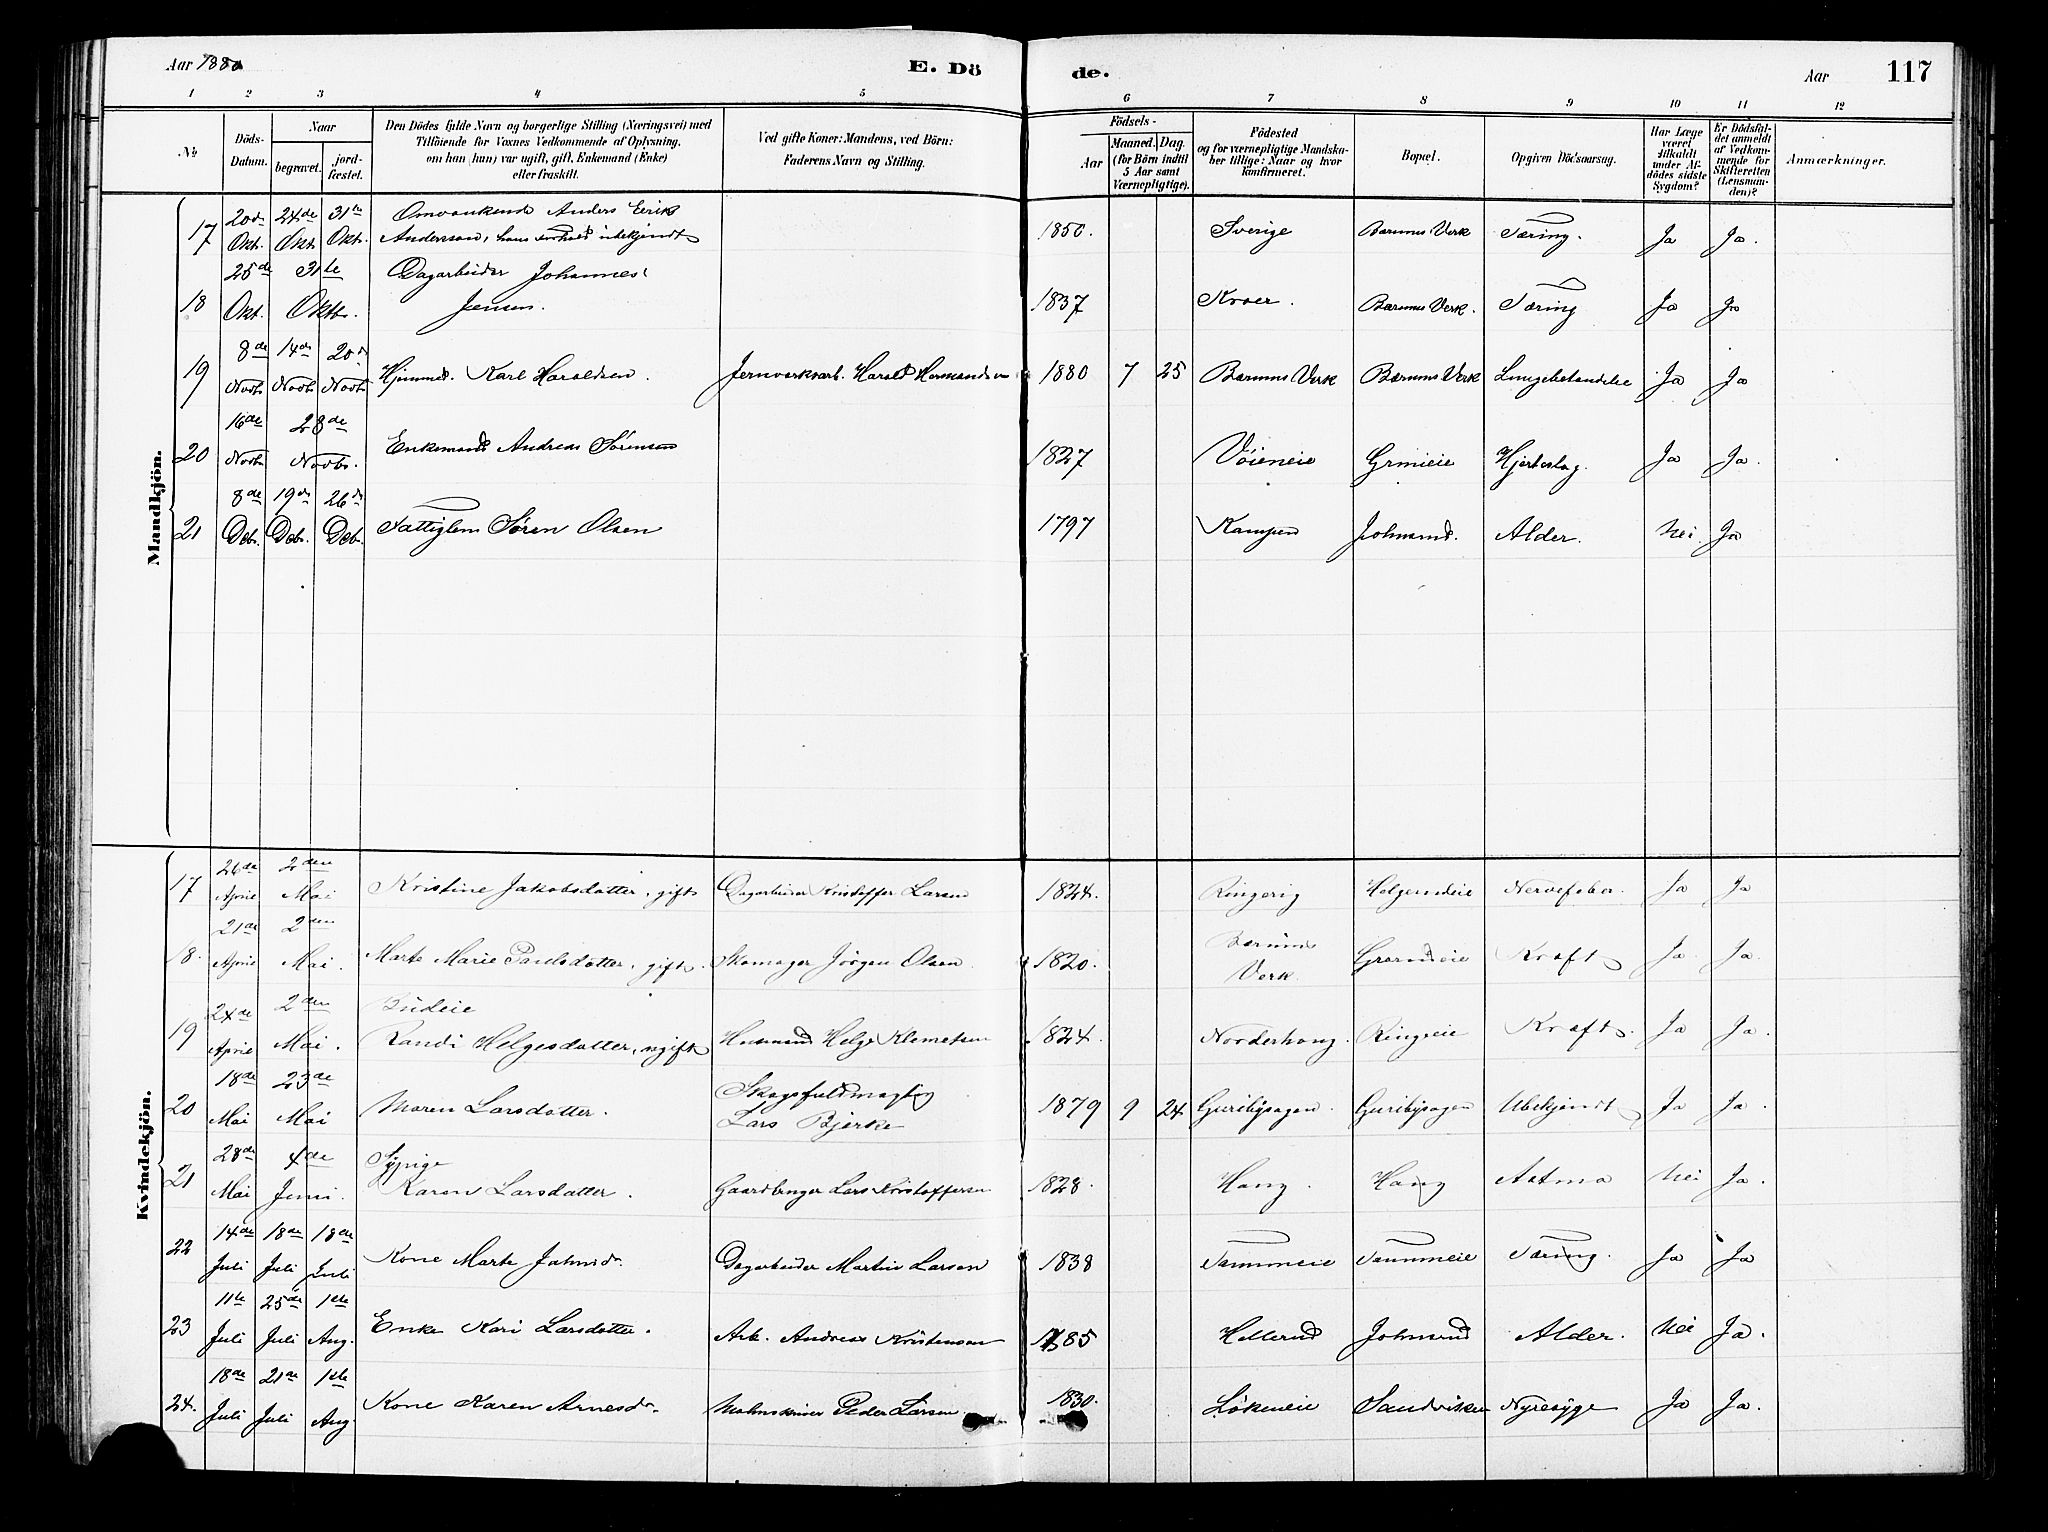 Aar 1880
E. Dö
de.
Aar
117
1 2 3 4 5 6 7 8 9 10 11 12
№
Döds-Datum.
Naar
begravet.
jord-fæstet.
Den Dödes fulde Navn og borgerlige Stilling (Næringsvei) med
Tilföiende for Voxnes Vedkommende af Oplysning,
om han (hun) var ugift, gift, Enkemand (Enke)
eller fraskilt.
Ved gifte Koner: Mandens, ved Börn:
Faderens Navn og Stilling.
Födsels-
Aar
Maaned. Dag.
(for Börn indtil
5 Aar samt
Værnepligtige).
Födested
og for værnepligtige Mandska-
ber tillige: Naar og hvor
konfirmeret.
Bopæl.
Opgiven Dödsaarsag.
Har Læge
været
tilkaldt
under Af-
dödes sidste
Sygdom?
Er Dödsfal-
det anmeldt
af Vedkom-
mende for
Skifteretten
(Lensman-
den)?
Anmærkninger.
Mandkjön.
17 20de Okt. 24de Okt. 31te Okt. Omvankende Anders Eerik
Andersson, hans forhold ubekjendt 1850. Sverige Bærums Verk Tæring. Ja Ja.
18 25de Okt. 31te Oktbr. Dagarbeider Johannes
Jensen. 1837 Kroer. Bærums Verk. Tæring Ja Ja
19 8de Novbr 14de Novbr 20de Novbr Hjemmed. Karl Haraldsen. Jernverksarb. Harald Hermandsen 1880 7 25 Bærums Verk Bærums Verk Lungebetændelse Ja Ja
20 16de Novbr 28de Novbr. Enkemand Andreas Sörensen 1827 Vöieneie Grinieie Hjerteslag. Ja Ja.
21 8de Debr. 19de Debr. 26de Debr. Fattiglem Sören Olsen 1797 Kampen Johnsrud. Alder. Nei. Ja
Kvindekjön.
17 26de April 2den Mai Kristine Jakobsdatter, gift Dagarbeider Kristoffer Larsen 1824. Ringerig Helgerudeie Nervefeber. Ja Ja
18. 21de April 2den Mai. Marte Marie Paulsdatter, gift. Skomager Jörgen Olsen 1820. Bærums
Verk. Kræft Ja. Ja.
19 24de April 2den Mai. Budeie
Randi Helgesdatter, ugift Husmand Helge Klemetsen 1824. Norderhong. Ringieie Kræft. Ja Ja.
20 18de Mai 23de Mai Maren Larsdatter. Skogsfuldmægtig
Lars Bjerke 1879 9 24 Guribysagen. Guribysagen Ubekjendt Ja Ja.
21 28de Mai 4de Juni. Sypige
Karen Larsdatter. Gaardbruger Lars Kristoffersen 1828. Haug. Haug Astma Nei Ja.
22 14de Juli 18de Juli 18de Juli Kone Marte Johnsd. Dagarbeider Martin Larsen 1838 Tanumeie Tanumeie Tæring. Ja Ja
23 11te Juli 25de Juli 1ste Aug. Enke Kari Larsdatter. Arb. Andreas Kristensen 1785 Hellerud Johnsrud Alder. Nei Ja.
24. 18de Juli 21de Juli 1ste Aug. Kone Karen Arnesdr. Peder Larsen 1830. Lökeneie Sandviken Nyresyge Ja Ja.